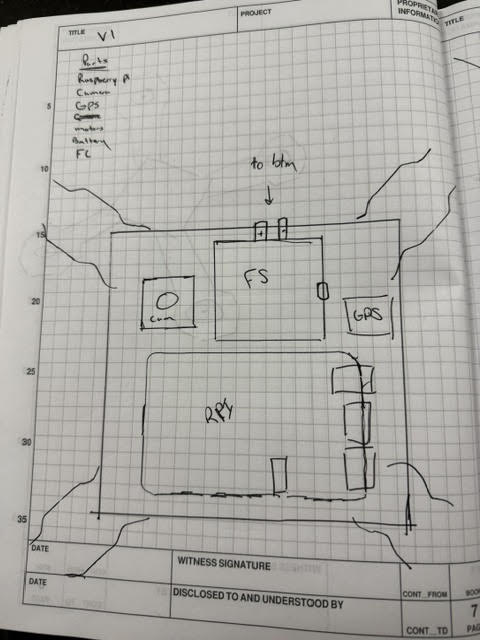 TITLE V1
PROJECT
PROPRIETARY
INFORMATION
TITLE
Parts
Raspberry Pi
Camera
GPS
motors
Battery
FC
5
10
15
20
25
30
35
to btm
+ -
FS
cam
GPS
RPY
DATE
WITNESS SIGNATURE
DATE
DISCLOSED TO AND UNDERSTOOD BY
CONT_FROM
CONT_TO
7